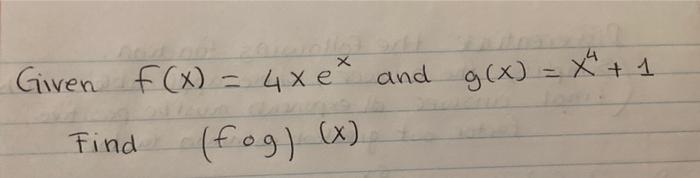 Given f(x) = 4xeˣ and g(x) = x⁴ + 1
Find (fog) (x)